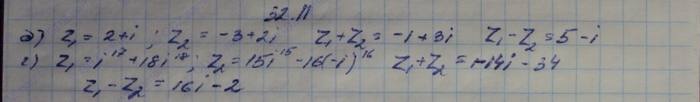 32.11
в) z₁ = 2+i ; z₂ = -3+2i z₁+z₂ = -1+3i z₁-z₂ = 5-i
г) z₁ = i¹⁷+18i¹⁸; z₂ = 15i¹⁵-16(-i)¹⁶ z₁+z₂ = -14i-34
z₁-z₂ = 16i-2